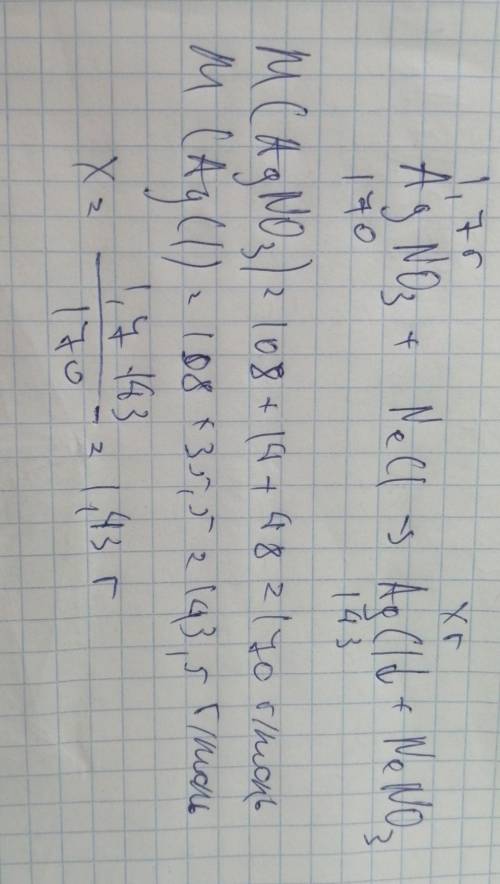 1,7г xг
AgNO₃ + NaCl → AgCl↓ + NaNO₃
170 143
M(AgNO₃) = 108 + 14 + 48 = 170 г/моль
M(AgCl) = 108 + 35,5 = 143,5 г/моль
x = 1,7 · 143 / 170 = 1,43 г